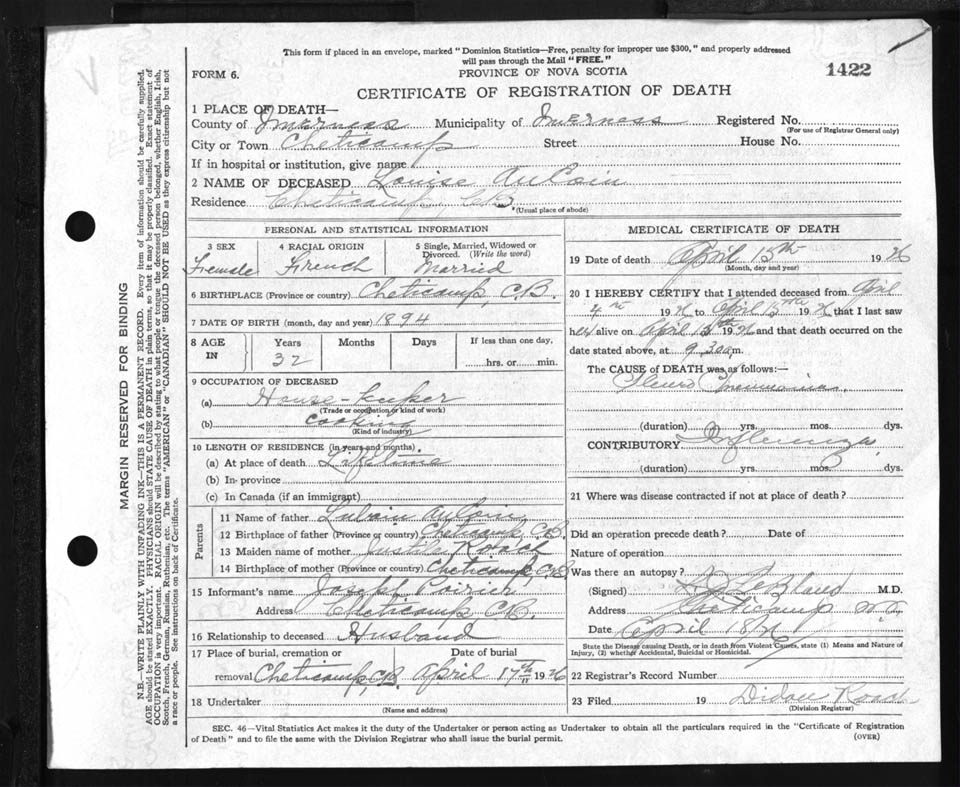 This form if placed in an envelope, marked "Dominion Statistics—Free, penalty for improper use $300," and properly addressed
will pass through the Mail "FREE."
FORM 6.
PROVINCE OF NOVA SCOTIA
1422
CERTIFICATE OF REGISTRATION OF DEATH
1 PLACE OF DEATH—
County of Inverness Municipality of Inverness Registered No.
(For use of Registrar General only)
City or Town Cheticamp Street House No.
If in hospital or institution, give name
2 NAME OF DECEASED Louise AuCoin
Residence Cheticamp, CB
(Usual place of abode)
PERSONAL AND STATISTICAL INFORMATION
3 SEX 4 RACIAL ORIGIN 5 Single, Married, Widowed or
Divorced. (Write the word)
Female French Married
6 BIRTHPLACE (Province or country) Cheticamp, C.B.
7 DATE OF BIRTH (month, day and year) 1894
8 AGE IN Years Months Days If less than one day,
32 hrs. or min.
9 OCCUPATION OF DECEASED
(a) House-keeper
(Trade or occupation or kind of work)
(b) cooking
(Kind of industry)
10 LENGTH OF RESIDENCE (in years and months)
(a) At place of death Lifetime
(b) In province
(c) In Canada (if an immigrant)
Parents
11 Name of father Lubain AuCoin
12 Birthplace of father (Province or country) Cheticamp, C.B.
13 Maiden name of mother Roach
14 Birthplace of mother (Province or country) Cheticamp C.B.
15 Informant's name Joseph Poirier
Address Cheticamp, C.B.
16 Relationship to deceased Husband
17 Place of burial, cremation or Date of burial
removal Cheticamp, C.B. April 17th 1926
18 Undertaker
(Name and address)
MEDICAL CERTIFICATE OF DEATH
19 Date of death April 15th 1926
(Month, day and year)
20 I HEREBY CERTIFY that I attended deceased from April
1926 to April 1926 that I last saw
her alive on April 1926 and that death occurred on
date stated above, at 9.30 a.m.
The CAUSE of DEATH was as follows:—
Pleuro Pneumonia
(duration) yrs. mos. dys.
CONTRIBUTORY Influenza
(duration) yrs. mos. dys.
21 Where was disease contracted if not at place of death?
Did an operation precede death? Date of
Nature of operation
Was there an autopsy?
(Signed) M.D.
Address Cheticamp
Date April 18/26
State the Disease causing Death, or in death from Violent Causes, state (1) Means and Nature of
Injury, (2) whether Accidental, Suicidal or Homicidal.
22 Registrar's Record Number
23 Filed 19
(Division Registrar)
SEC. 46—Vital Statistics Act makes it the duty of the Undertaker or person acting as Undertaker to obtain all the particulars required in the "Certificate of Registration
of Death" and to file the same with the Division Registrar who shall issue the burial permit.
(OVER)
MARGIN RESERVED FOR BINDING
N.B.—WRITE PLAINLY WITH UNFADING INK—THIS IS A PERMANENT RECORD. Every item of information should be carefully supplied.
AGE should be stated EXACTLY. PHYSICIANS should STATE CAUSE OF DEATH in plain terms, so that it may be properly classified. Exact statement of
OCCUPATION is very important. RACIAL ORIGIN will be described by stating to what people or tongue the deceased person belonged, whether English, Irish,
Scotch, French, German, Russian, Ruthenian, etc. The terms "AMERICAN" or "CANADIAN" SHOULD NOT BE USED as they express citizenship but not
a race or people. See instructions on back of Certificate.